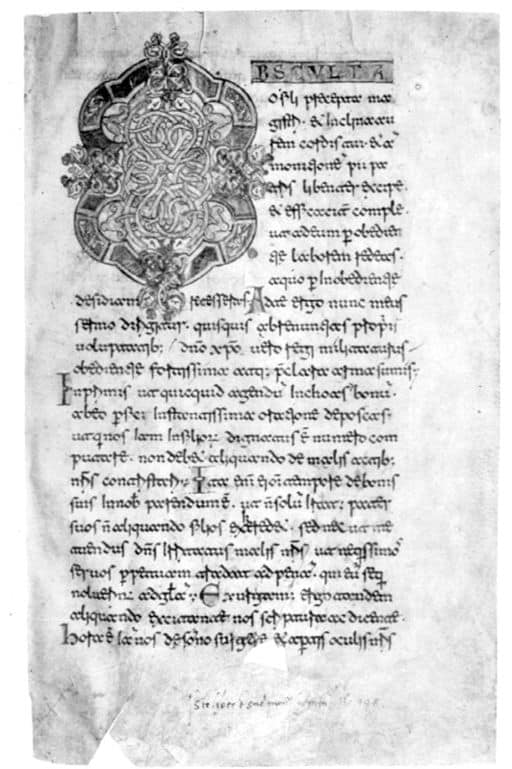 BSCULTA
o fili precepta ma
gistri. & inclina au
rem cordis tui. & ad
monitionē pii pa
tris libenter excipe.
& efficaciter comple.
ut ad eum ꝑ obedien
tie laborem redeas.
a quo ꝑ inobedientie
desidiam recesseras. Ad te ergo nunc meus
sermo dirigitur. quisquis abrenuntias propriis
voluptatib; dño xpo. vero regi militaturus
obedientie fortissima atq; preclara arma sumis.
Inprimis ut quicquid agendū inchoas bonū.
ab eo ꝑfici instantissima oratione deposcas.
ut qui nos iam in filior̄ dignatus ē numero com
putare. non debeat aliquando de malis actib;
nr̄is contristari. Ita enī ei om̄i tempore de bonis
suis in nob̄ parendum ē. ut n̄ solū iratus pater
suos n̄ aliquando filios exheredet. sed nec ut me
tuendus dn̄s irritatus malis nr̄is ut neq̄issimos
servos ꝑpetuam tradat ad penā. qui eū seq̄i
noluerint ad gl̄am. Exurgamus ergo tandem
aliquando excitante nos scriptura ac dicente.
hora ē iam nos de somno surgere & apertis oculis nr̄is